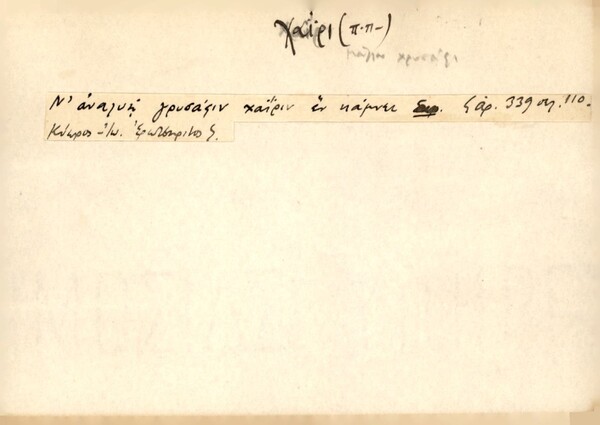 χαΐρι (π.π-)
χρυσάφι
Ν' ἀναλυῇ χρυσάφιν χαΐριν ἔν κάμνει Σ ἀρ. 339 σελ. 110-
Κύπρος - Ἰω. Ἐρωτόκριτος Σ.